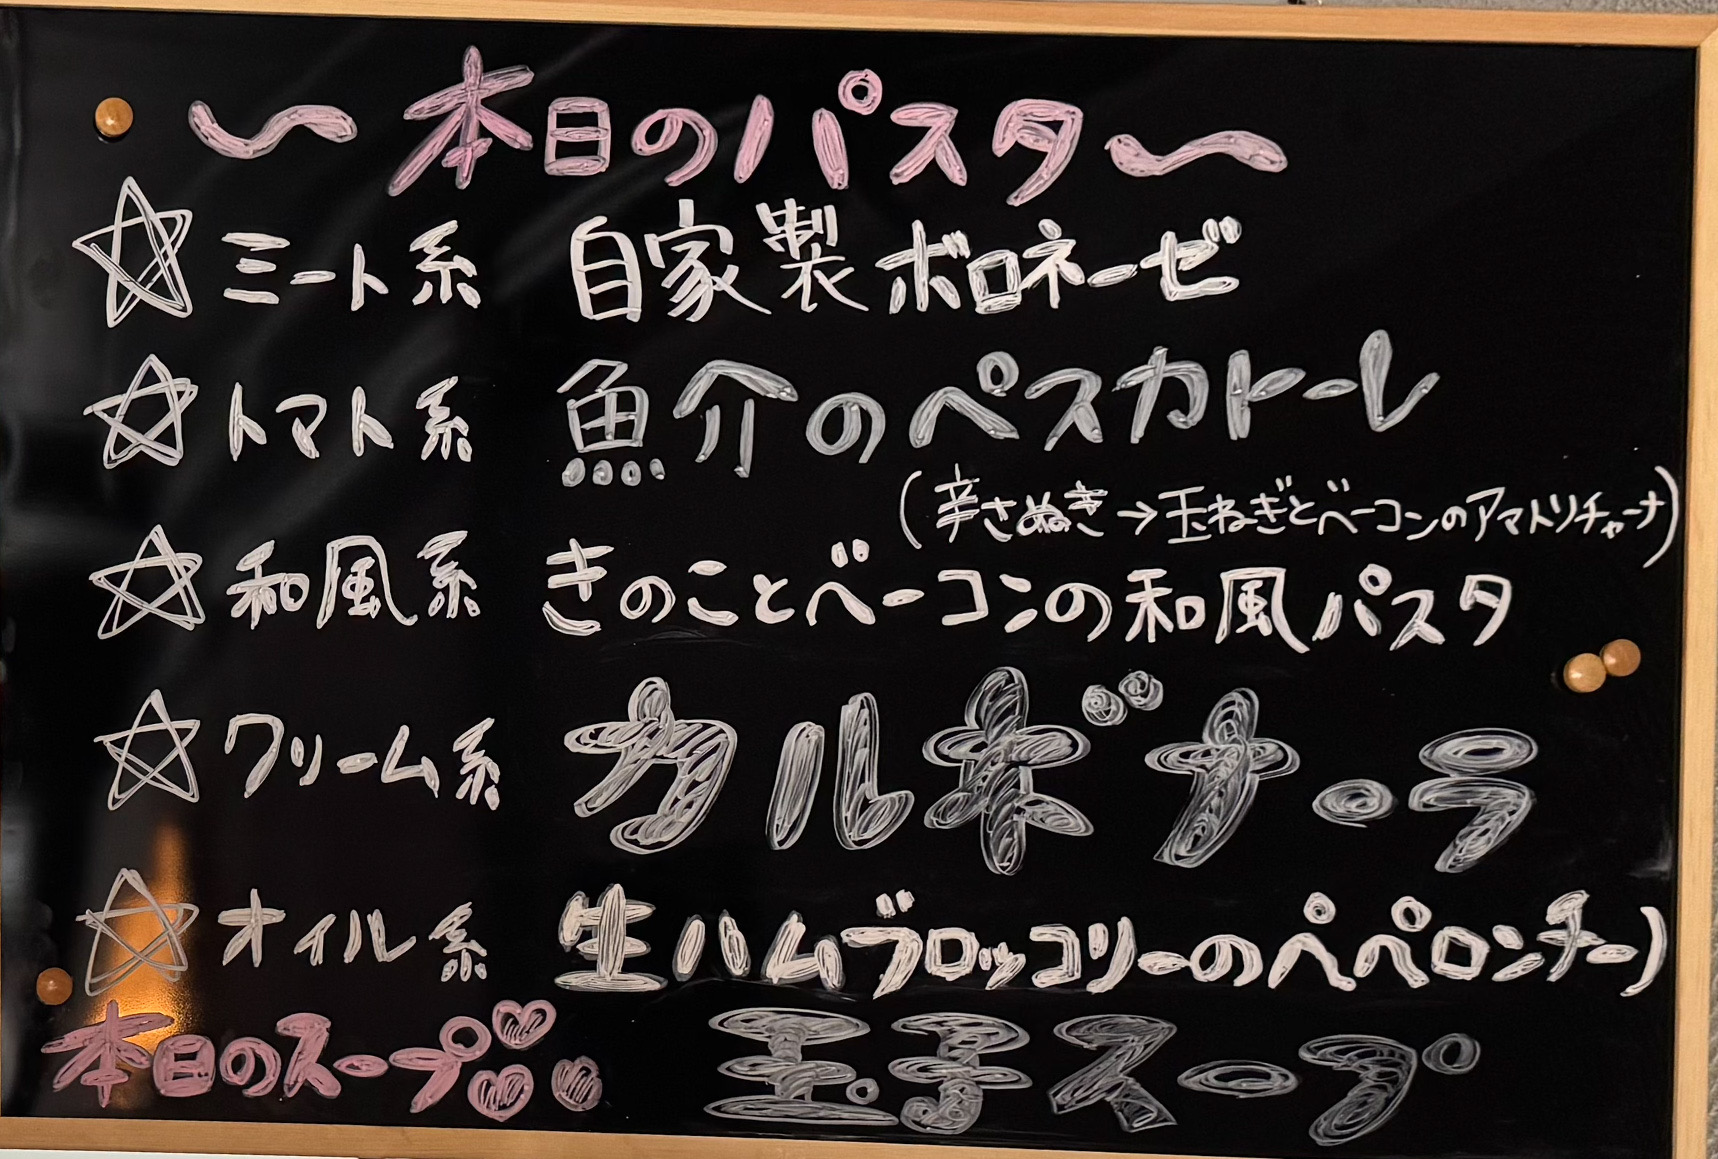 〜本日のパスタ〜
☆ミート系 自家製ボロネーゼ
☆トマト系 魚介のペスカトーレ
(辛さぬき→玉ねぎとベーコンのアマトリチャーナ)
☆和風系 きのことベーコンの和風パスタ
☆クリーム系 カルボナーラ
☆オイル系 生ハムブロッコリーのペペロンチーノ
本日のスープ♡♡♡ 玉子スープ